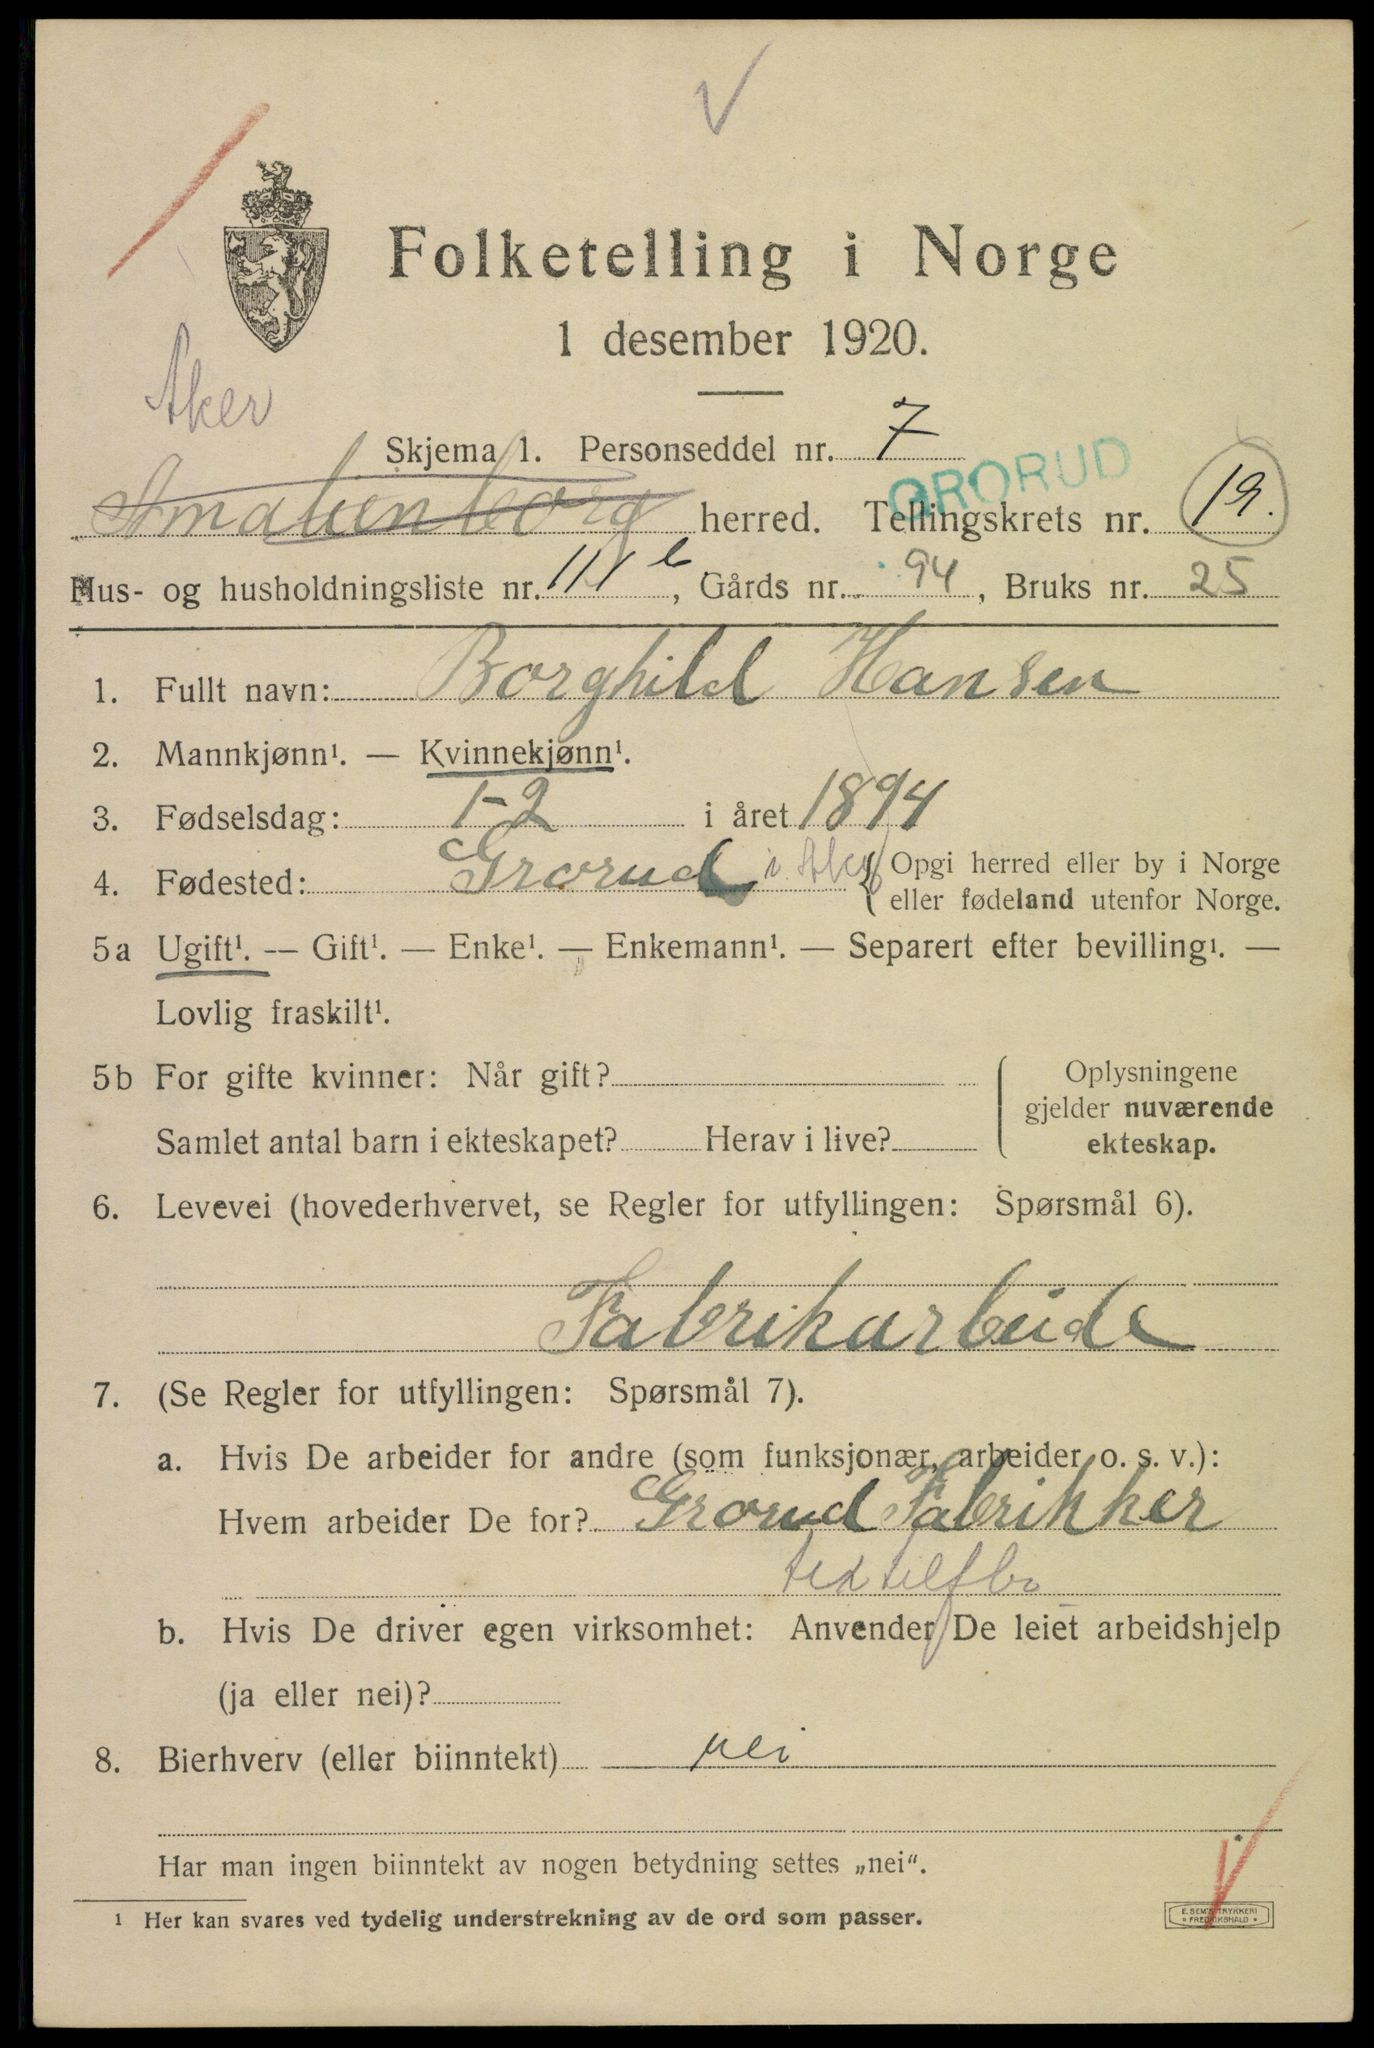 Folketelling i Norge
1 desember 1920.
Aker
Skjema 1. Personseddel nr. 7
GRORUD
Amalienborg herred. Tellingskrets nr. 19.
Hus- og husholdningsliste nr. 111 b, Gårds nr. 94, Bruks nr. 25
1. Fullt navn: Borghild Hansen
2. Mannkjønn¹. — Kvinnekjønn¹.
3. Fødselsdag: 1-2 i året 1894
4. Fødested: Grorud i Aker { Opgi herred eller by i Norge
eller fødeland utenfor Norge.
5a Ugift¹. — Gift¹. — Enke¹. — Enkemann¹. — Separert efter bevilling¹. —
Lovlig fraskilt¹.
5b For gifte kvinner: Når gift?
Samlet antal barn i ekteskapet? Herav i live?
Oplysningene
gjelder nuværende
ekteskap.
6. Levevei (hovederhvervet, se Regler for utfyllingen: Spørsmål 6).
Fabrikarbeide
7. (Se Regler for utfyllingen: Spørsmål 7).
a. Hvis De arbeider for andre (som funksjonær, arbeider o. s. v.):
Hvem arbeider De for? Grorud Fabrikker
b. Hvis De driver egen virksomhet: Anvender De leiet arbeidshjelp
(ja eller nei)?
8. Bierhverv (eller biinntekt) nei
Har man ingen biinntekt av nogen betydning settes „nei“.
¹ Her kan svares ved tydelig understrekning av de ord som passer.
E. SEM'S TRYKKERI
* FREDRIKSHALD *